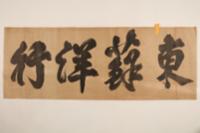 東蘇洋行